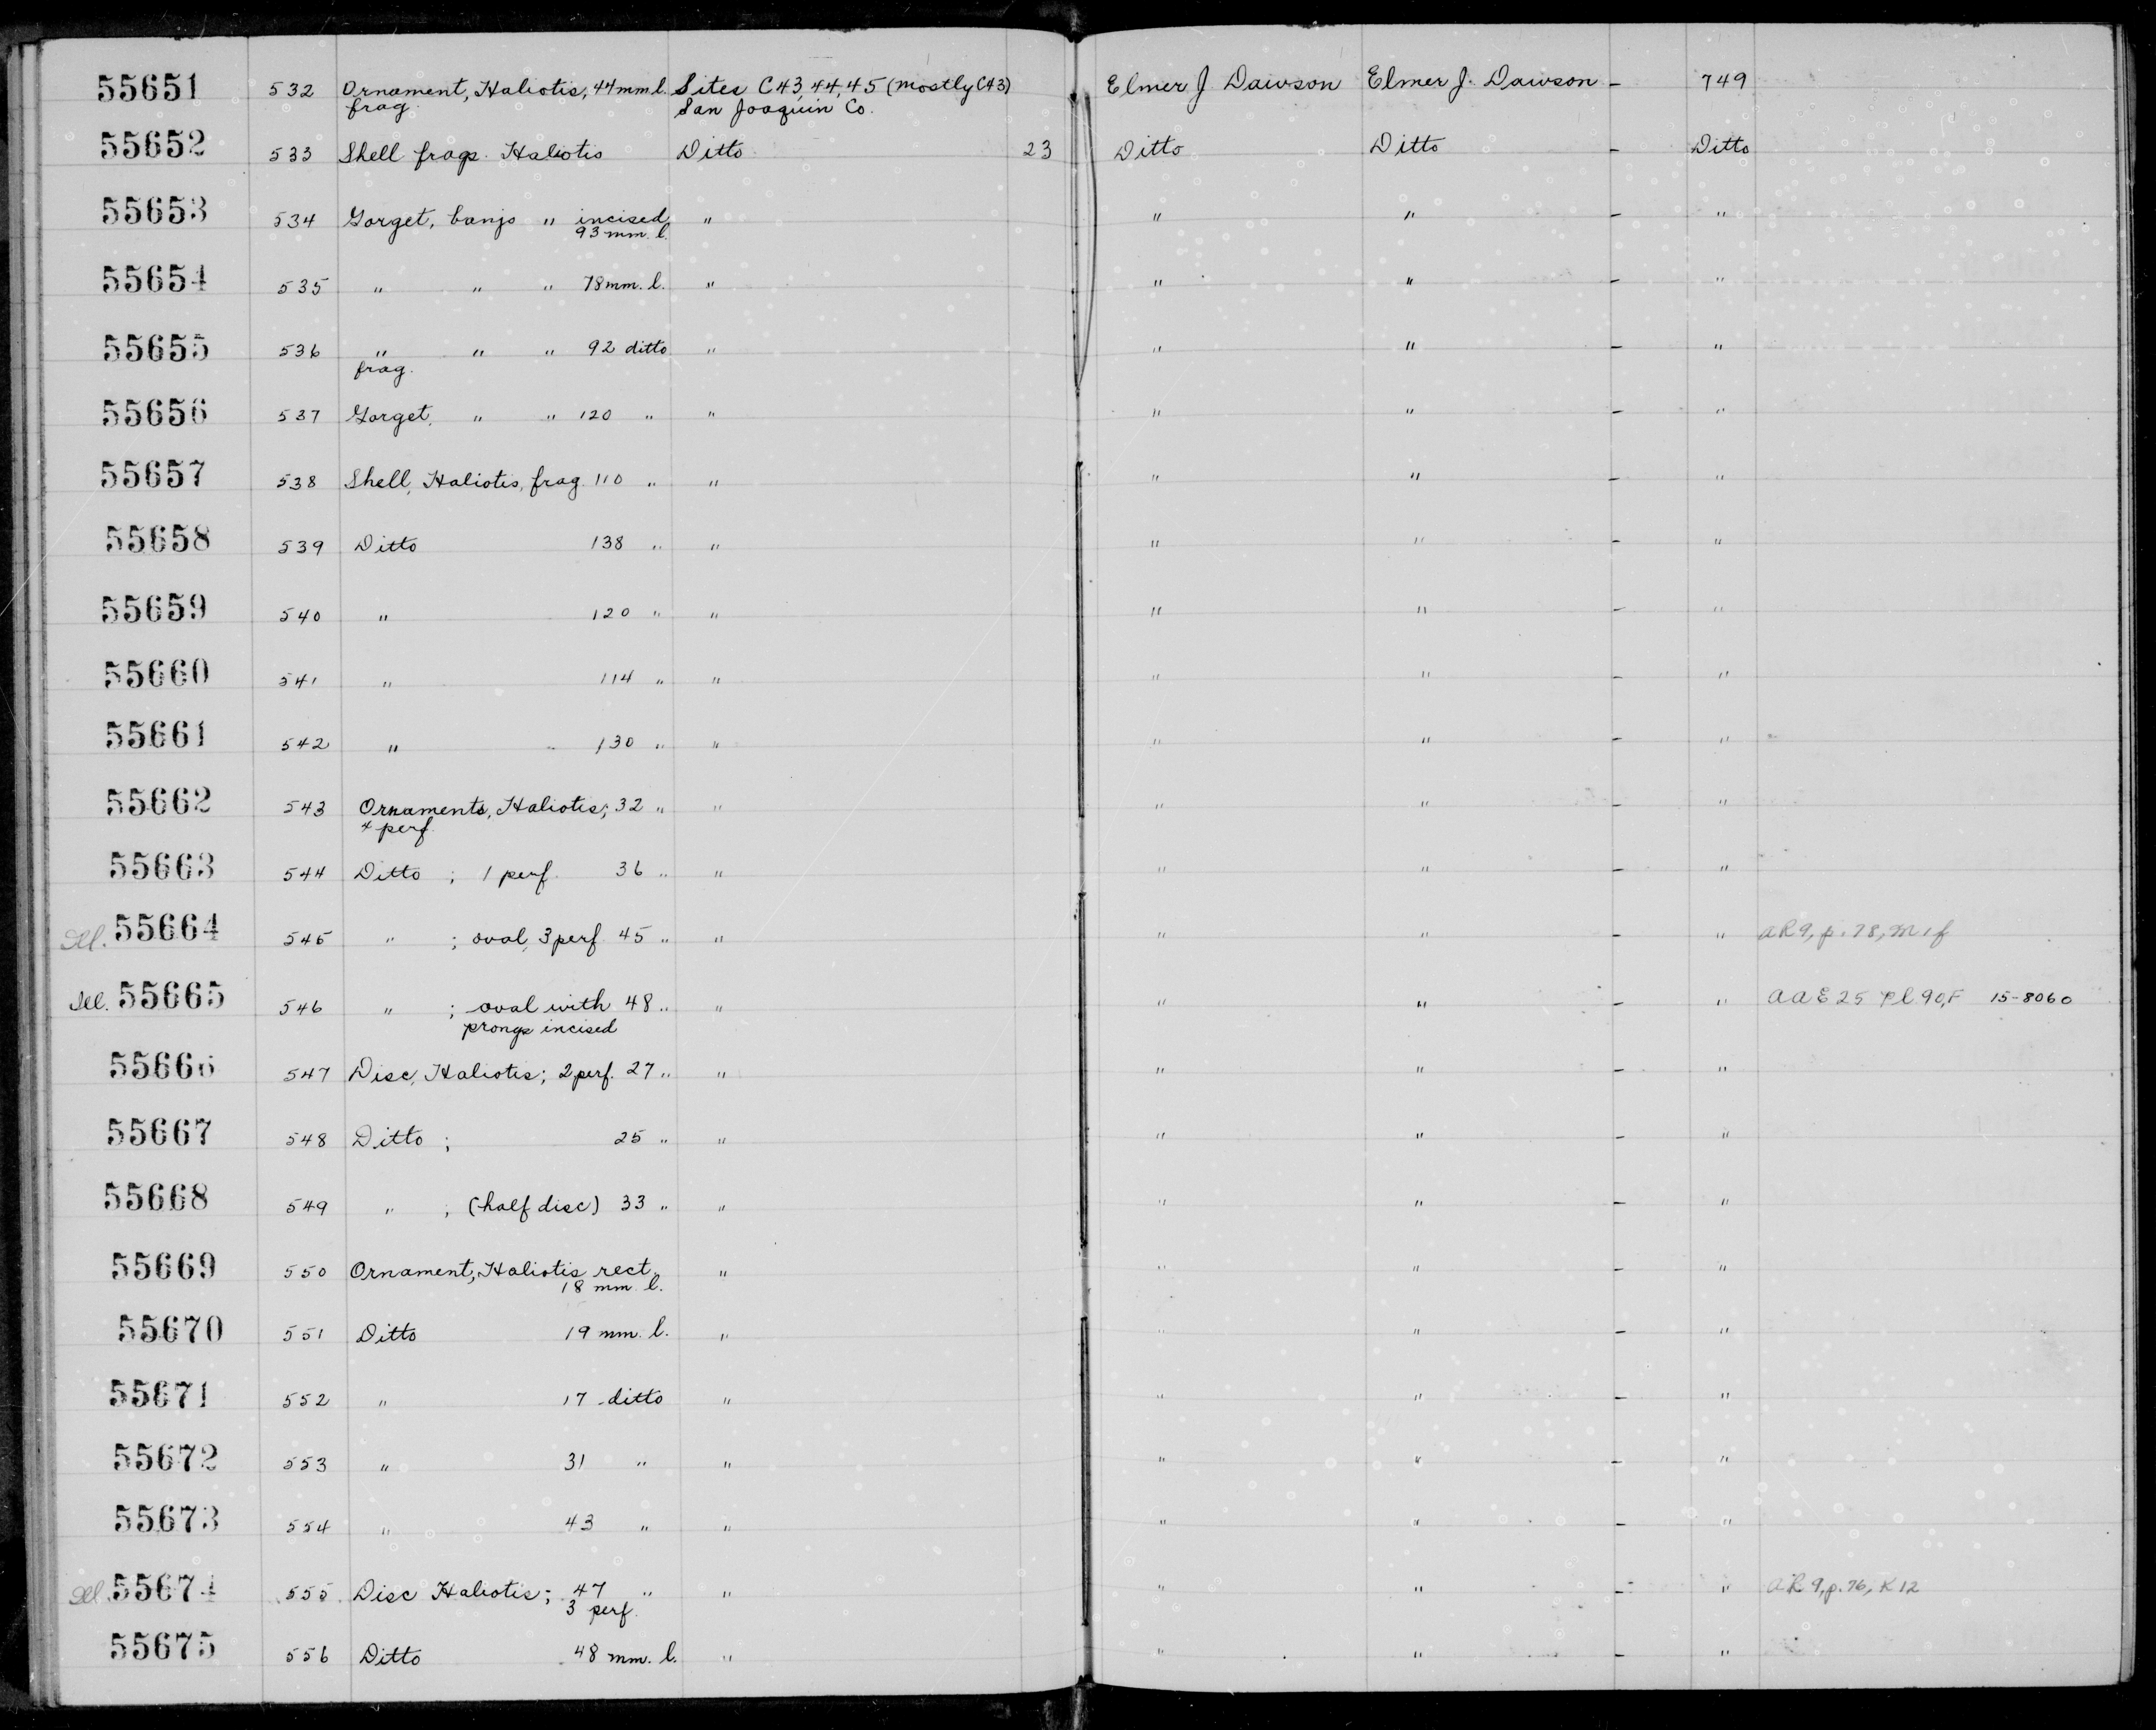 55651 532 Ornament, Haliotis, 44 mm l. Sites C43, 44, 45 (mostly C43) Elmer J. Dawson Elmer J. Dawson - 749
frag. San Joaquin Co.
55652 533 Shell frags. Haliotis Ditto 23 Ditto Ditto - Ditto
55653 534 Gorget, banjo " incised " " " - "
93 mm. l.
55654 535 " " " 78 mm. l. " " " - "
55655 536 " " " 92 ditto " " " - "
frag.
55656 537 Gorget, " " 120 " " " " - "
55657 538 Shell, Haliotis, frag. 110 " " " " - "
55658 539 Ditto 138 " " " " - "
55659 540 " 120 " " " " - "
55660 541 " 114 " " " " - "
55661 542 " 130 " " " " - "
55662 543 Ornaments, Haliotis; 32 " " " " - "
4 perf.
55663 544 Ditto ; 1 perf. 36 " " " " - "
Ill. 55664 545 " ; oval, 3 perf. 45 " " " " - " AR9, p. 78, M1f
Ill. 55665 546 " ; oval with 48 " " " " - " AAE 25 Pl 90, F 15-8060
prongs incised
55666 547 Disc, Haliotis; 2 perf. 27 " " " " - "
55667 548 Ditto ; 25 " " " " - "
55668 549 " ; (half disc) 33 " " " " - "
55669 550 Ornament, Haliotis rect. " " " - "
18 mm. l.
55670 551 Ditto 19 mm. l. " " " - "
55671 552 " 17 ditto " " " - "
55672 553 " 31 " " " " - "
55673 554 " 43 " " " " - "
Ill. 55674 555 Disc Haliotis; 47 " " " " - " AR 9, p. 76, K12
3 perf.
55675 556 Ditto 48 mm. l. " " " - "